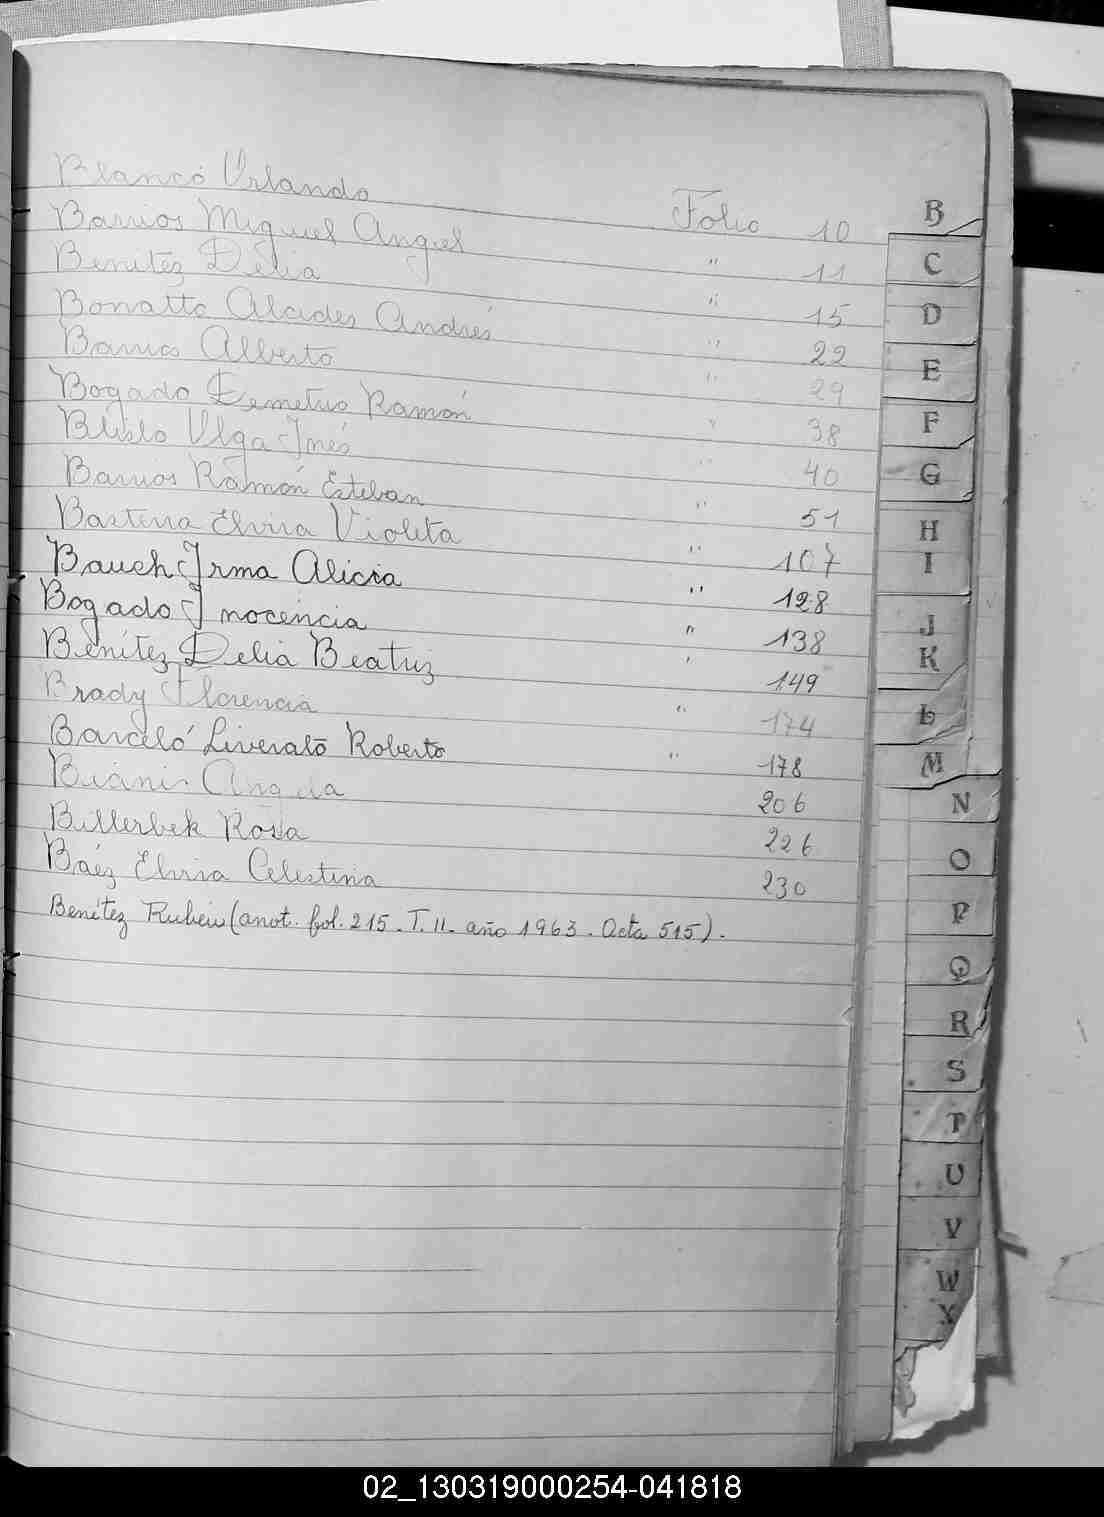 Blanco Orlando Folio 10
Barrios Miguel Angel " 11
Benitez Delia " 15
Bonatto Alcides Andrés " 22
Barrios Alberto " 29
Bogado Demetrio Ramón " 38
Olga Inés " 40
Barrios Ramón Esteban " 51
Basterra Elvira Violeta " 107
Bauch Irma Alicia " 128
Bogado Inocencia " 138
Benítez Delia Beatriz " 149
Brady Florencia " 174
Barceló Liverato Roberto " 178
Angela 206
Billerbek Rosa 226
Báez Elvira Celestina 230
Benítez Ruben (anot. fol. 215. T. II. año 1963. Acta 515).
B
C
D
E
F
G
H
I
J
K
L
M
N
O
P
Q
R
S
T
U
V
W
X
02_130319000254-041818